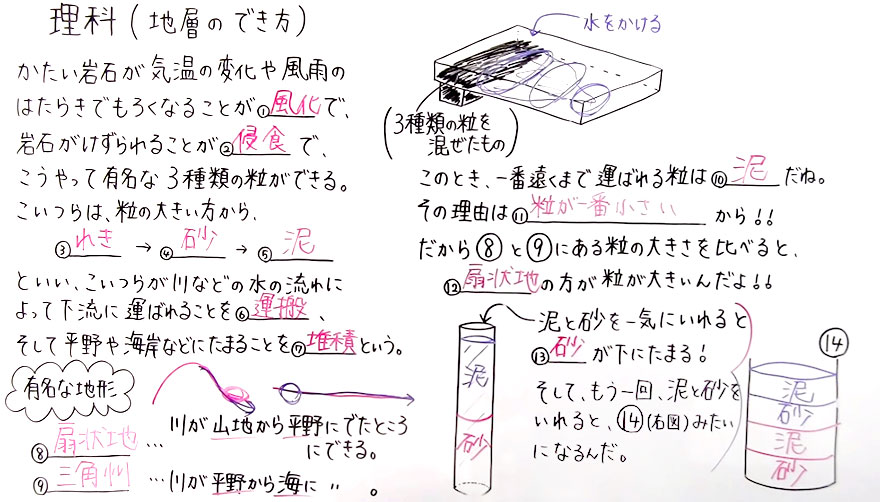 理科(地層のでき方)
かたい岩石が気温の変化や風雨の
はたらきでもろくなることが①風化で、
岩石がけずられることが②侵食で、
こうやって有名な3種類の粒ができる。
こいつらは、粒の大きい方から、
③れき→④砂→⑤泥
といい、こいつらが川などの水の流れに
よって下流に運ばれることを⑥運搬、
そして平野や海岸などにたまることを⑦堆積という。
有名な地形
⑧扇状地…川が山地から平野にでたところ
にできる。
⑨三角州…川が平野から海に〃。
水をかける
(3種類の粒を
混ぜたもの)
このとき、一番遠くまで運ばれる粒は⑩泥だね。
その理由は⑪粒が一番小さいから!!
だから⑧と⑨にある粒の大きさを比べると、
⑫扇状地の方が粒が大きいんだよ!!
泥と砂を一気にいれると
⑬砂が下にたまる!
そして、もう一回、泥と砂を
いれると、⑭(右図)みたい
になるんだ。
泥
砂
⑭
泥
砂
泥
砂